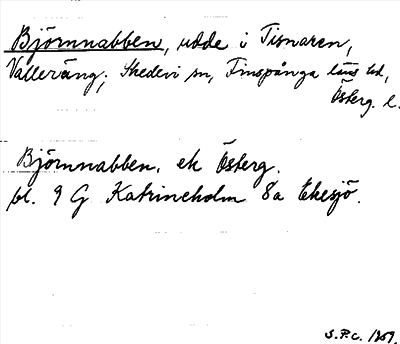 Björnnabben, udde i Tisnaren,
Valleräng, Skedevi sn, Finspånga läns hd,
Österg. l.
Björnnabben, ek Österg.
bl. 9 G Katrineholm 8a Ekesjö.
S.P.C. 1959.